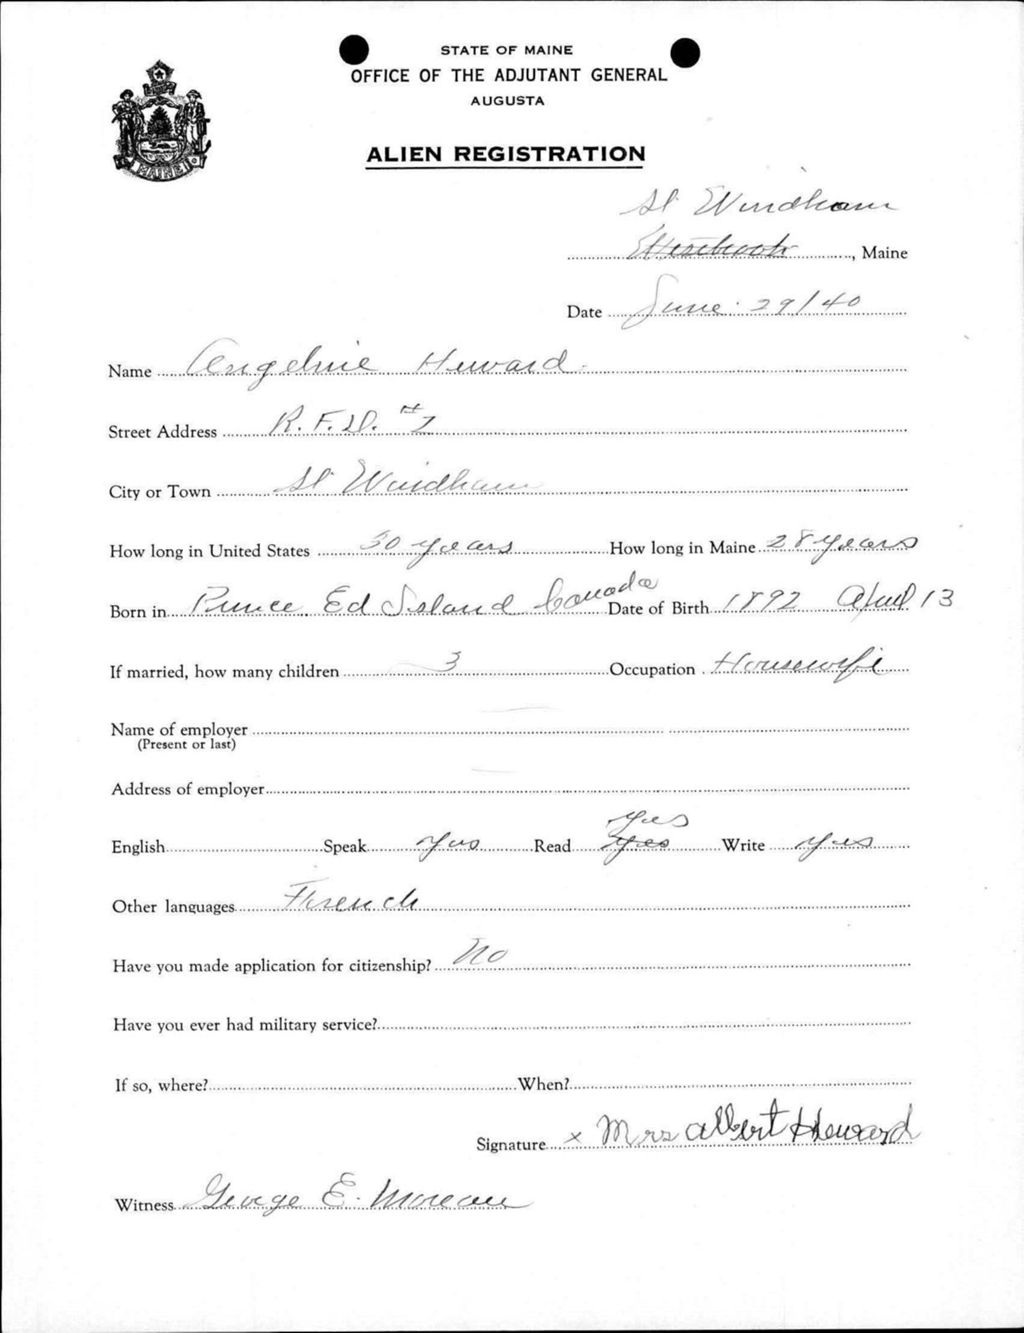 STATE OF MAINE
OFFICE OF THE ADJUTANT GENERAL
AUGUSTA
ALIEN REGISTRATION
MAINE
So Windham
Westbrook, Maine
Date June 29/40
Name Angeline Heward
Street Address R.F.D. #1
City or Town So Windham
How long in United States 30 years How long in Maine 28 years
Born in Prince Ed Island Canada Date of Birth 1892 April 13
If married, how many children 3 Occupation Housewife
Name of employer
(Present or last)
Address of employer
yes
English Speak yes Read yes Write yes
Other languages French
Have you made application for citizenship? No
Have you ever had military service?
If so, where? When?
Signature x Mrs Albert Heward
Witness George E. Moreau